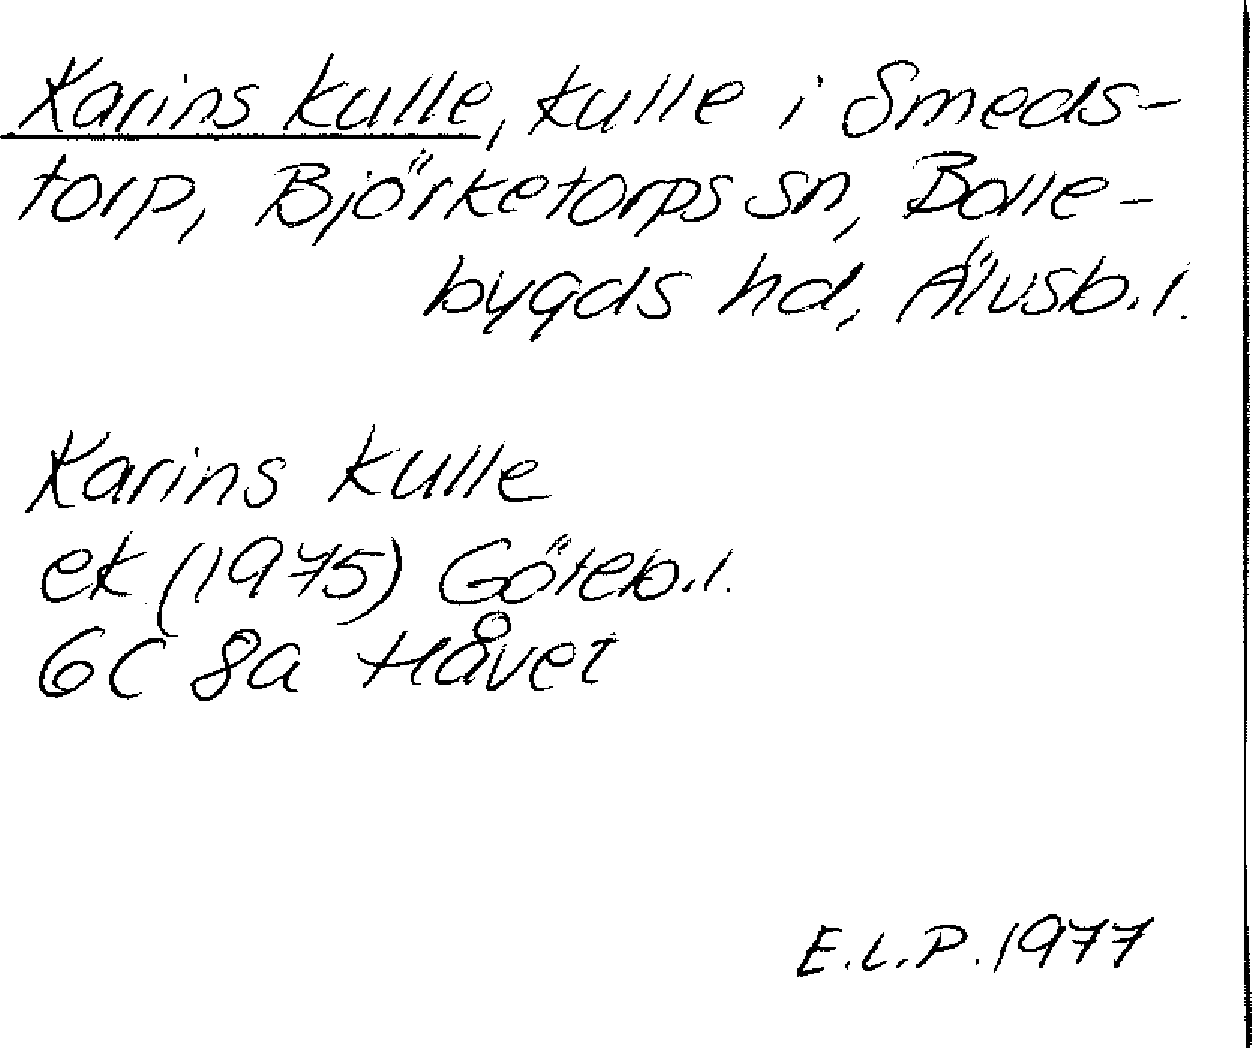 Karins kulle, kulle i Smeds-
torp, Björketorps sn, Bolle-
bygds hd, Älvsb.l.
Karins kulle
ek (1975) Göteb.l.
6C 8a Håvet
E.L.P. 1977